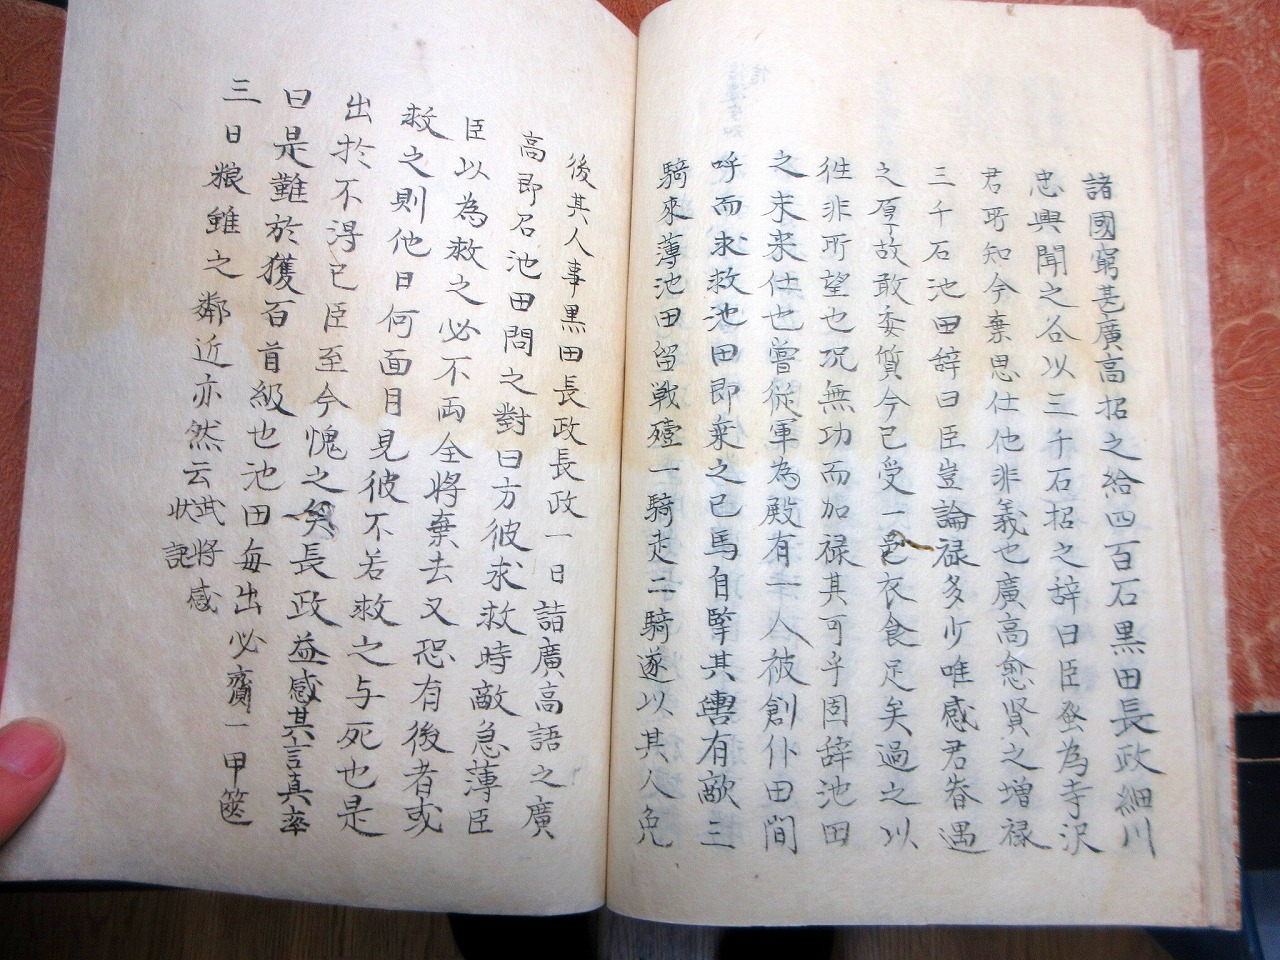 諸國窮甚廣高招之給四百石黒田長政細川
忠興聞之各以三千石招之辞曰臣登為寺沢
君所知今棄恩仕他非義也廣高愈賢之増禄
三千石池田辞曰臣豈論禄多少唯感君眷遇
之厚故敢委質今已受一邑衣食足矣過之以
徃非所望也况無功而加禄其可乎固辞池田
之未来仕也嘗従軍為殿有一人被創仆田間
呼而求救池田即乗之已馬自撃其轡有敵三
騎來薄池田留戦殪一騎走二騎遂以其人免
後其人事黒田長政長政一日詣廣高語之廣
高即召池田問之對曰方彼求救時敵急薄臣
臣以為救之必不両全将棄去又恐有後者或
救之則他日何面目見彼不若救之与死也是
出於不得已臣至今愧之矣長政益感其言真率
曰是難於獲百首級也池田毎出必齎一甲篋
三日粮雖之鄰近亦然云 武将感
状記